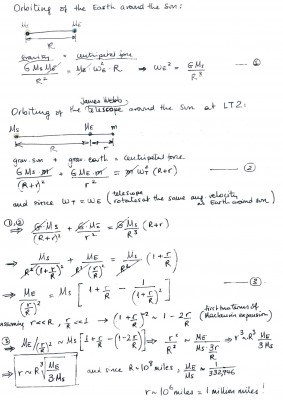 Orbiting of the Earth around the Sun:
Ms ME
R
gravity = centripetal force
G Ms ME / R² = ME ωE² · R ⇒ ωE² = G Ms / R³ ①
James Webb
Orbiting of the telescope around the Sun at LT2:
Ms ME m
R r
grav. sun + grav. earth = centripetal force
G Ms · m / (R+r)² + G ME · m / r² = m ωT² (R+r) ②
and since ωT = ωE (telescope rotates at the same ang. velocity as Earth around sun)
①,② ⇒ G Ms / (R+r)² + G ME / r² = G Ms / R³ (R+r)
⇒ Ms / R² (1 + r/R)² + ME / R² (r/R)² = Ms / R² (1 + r/R)
⇒ ME / (r/R)² = Ms [1 + r/R − 1 / (1 + r/R)²] ③
assuming r << R, r/R << 1 ⇒ (1 + r/R)⁻² ≈ 1 − 2 r/R (first two terms of Maclaurin expansion)
③ ⇒ ME / (r/R)² ≈ Ms [1 + r/R − (1 − 2r/R)] ⇒ r² / R² ≈ ME / Ms · 3r/R ⇒ r³ ≈ R³ ME / 3Ms
⇒ r ≈ R ∛(ME / 3Ms) and since R ~ 10⁸ miles, ME / Ms ≈ 1 / 332,946
r ~ 10⁶ miles = 1 million miles!